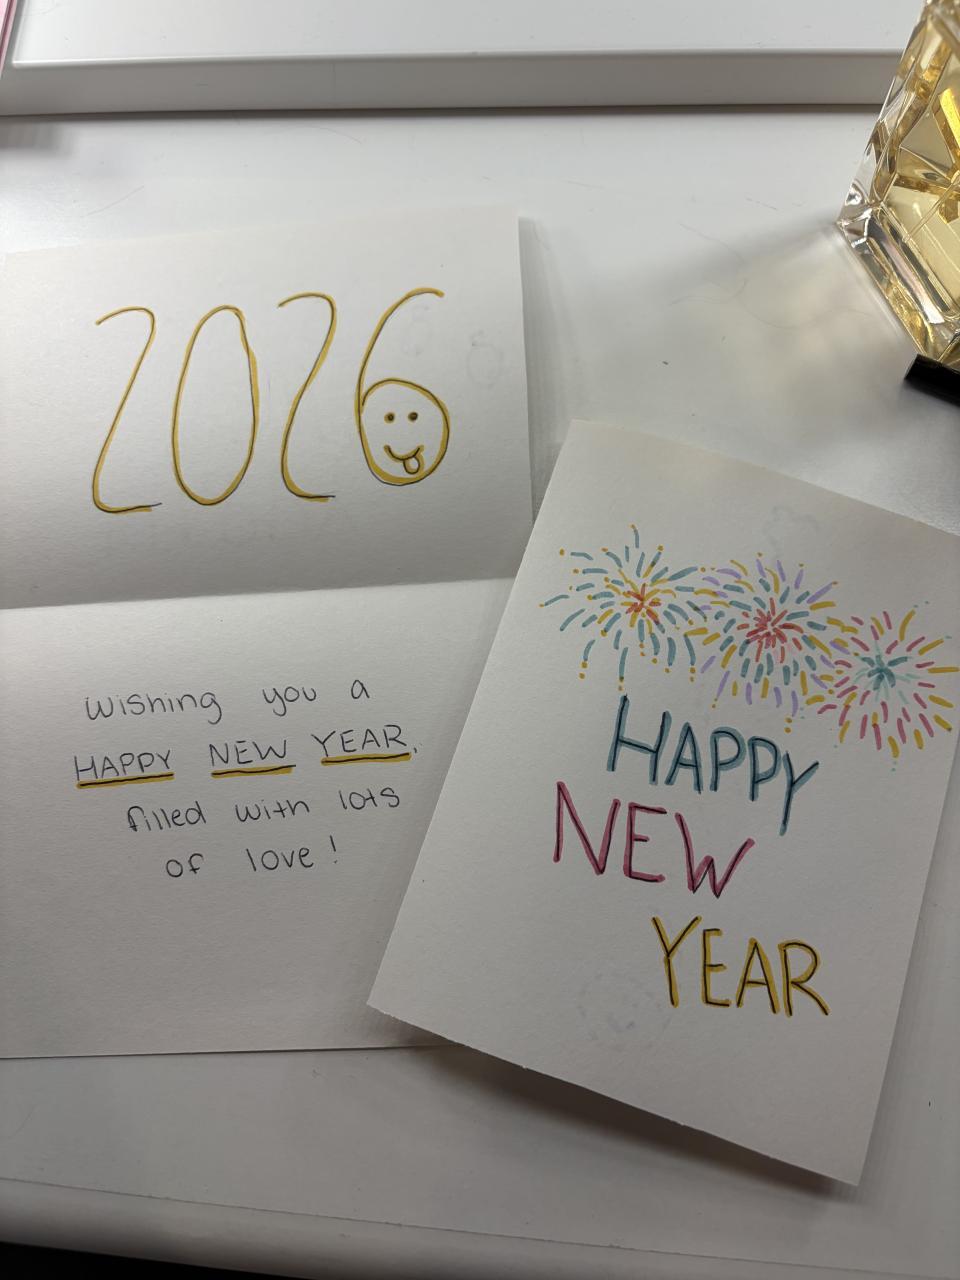 2026
wishing you a
HAPPY NEW YEAR,
filled with lots
of love!
HAPPY
NEW
YEAR